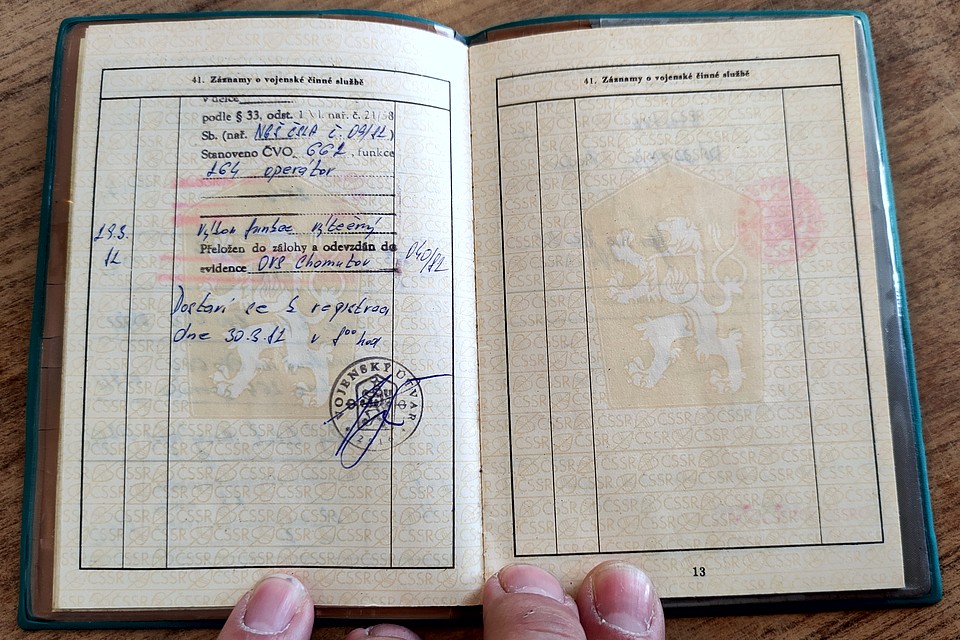 41. Záznamy o vojenské činné službě
V délce
podle § 33, odst. 1 nař. č. 21/58
Sb. (nař. NGŠ ČSLA č. 09/82)
Stanoveno ČVO 661, funkce
164 operator
Výkon funkce výtečný
19.3.
82
Přeložen do zálohy a odevzdán do
evidence OVS Chomutov
040/82
Dostaví se k registraci
dne 30.3.82 v 8⁰⁰ hod
VOJENSKÝ ÚTVAR
41. Záznamy o vojenské činné službě
13
ČSSR